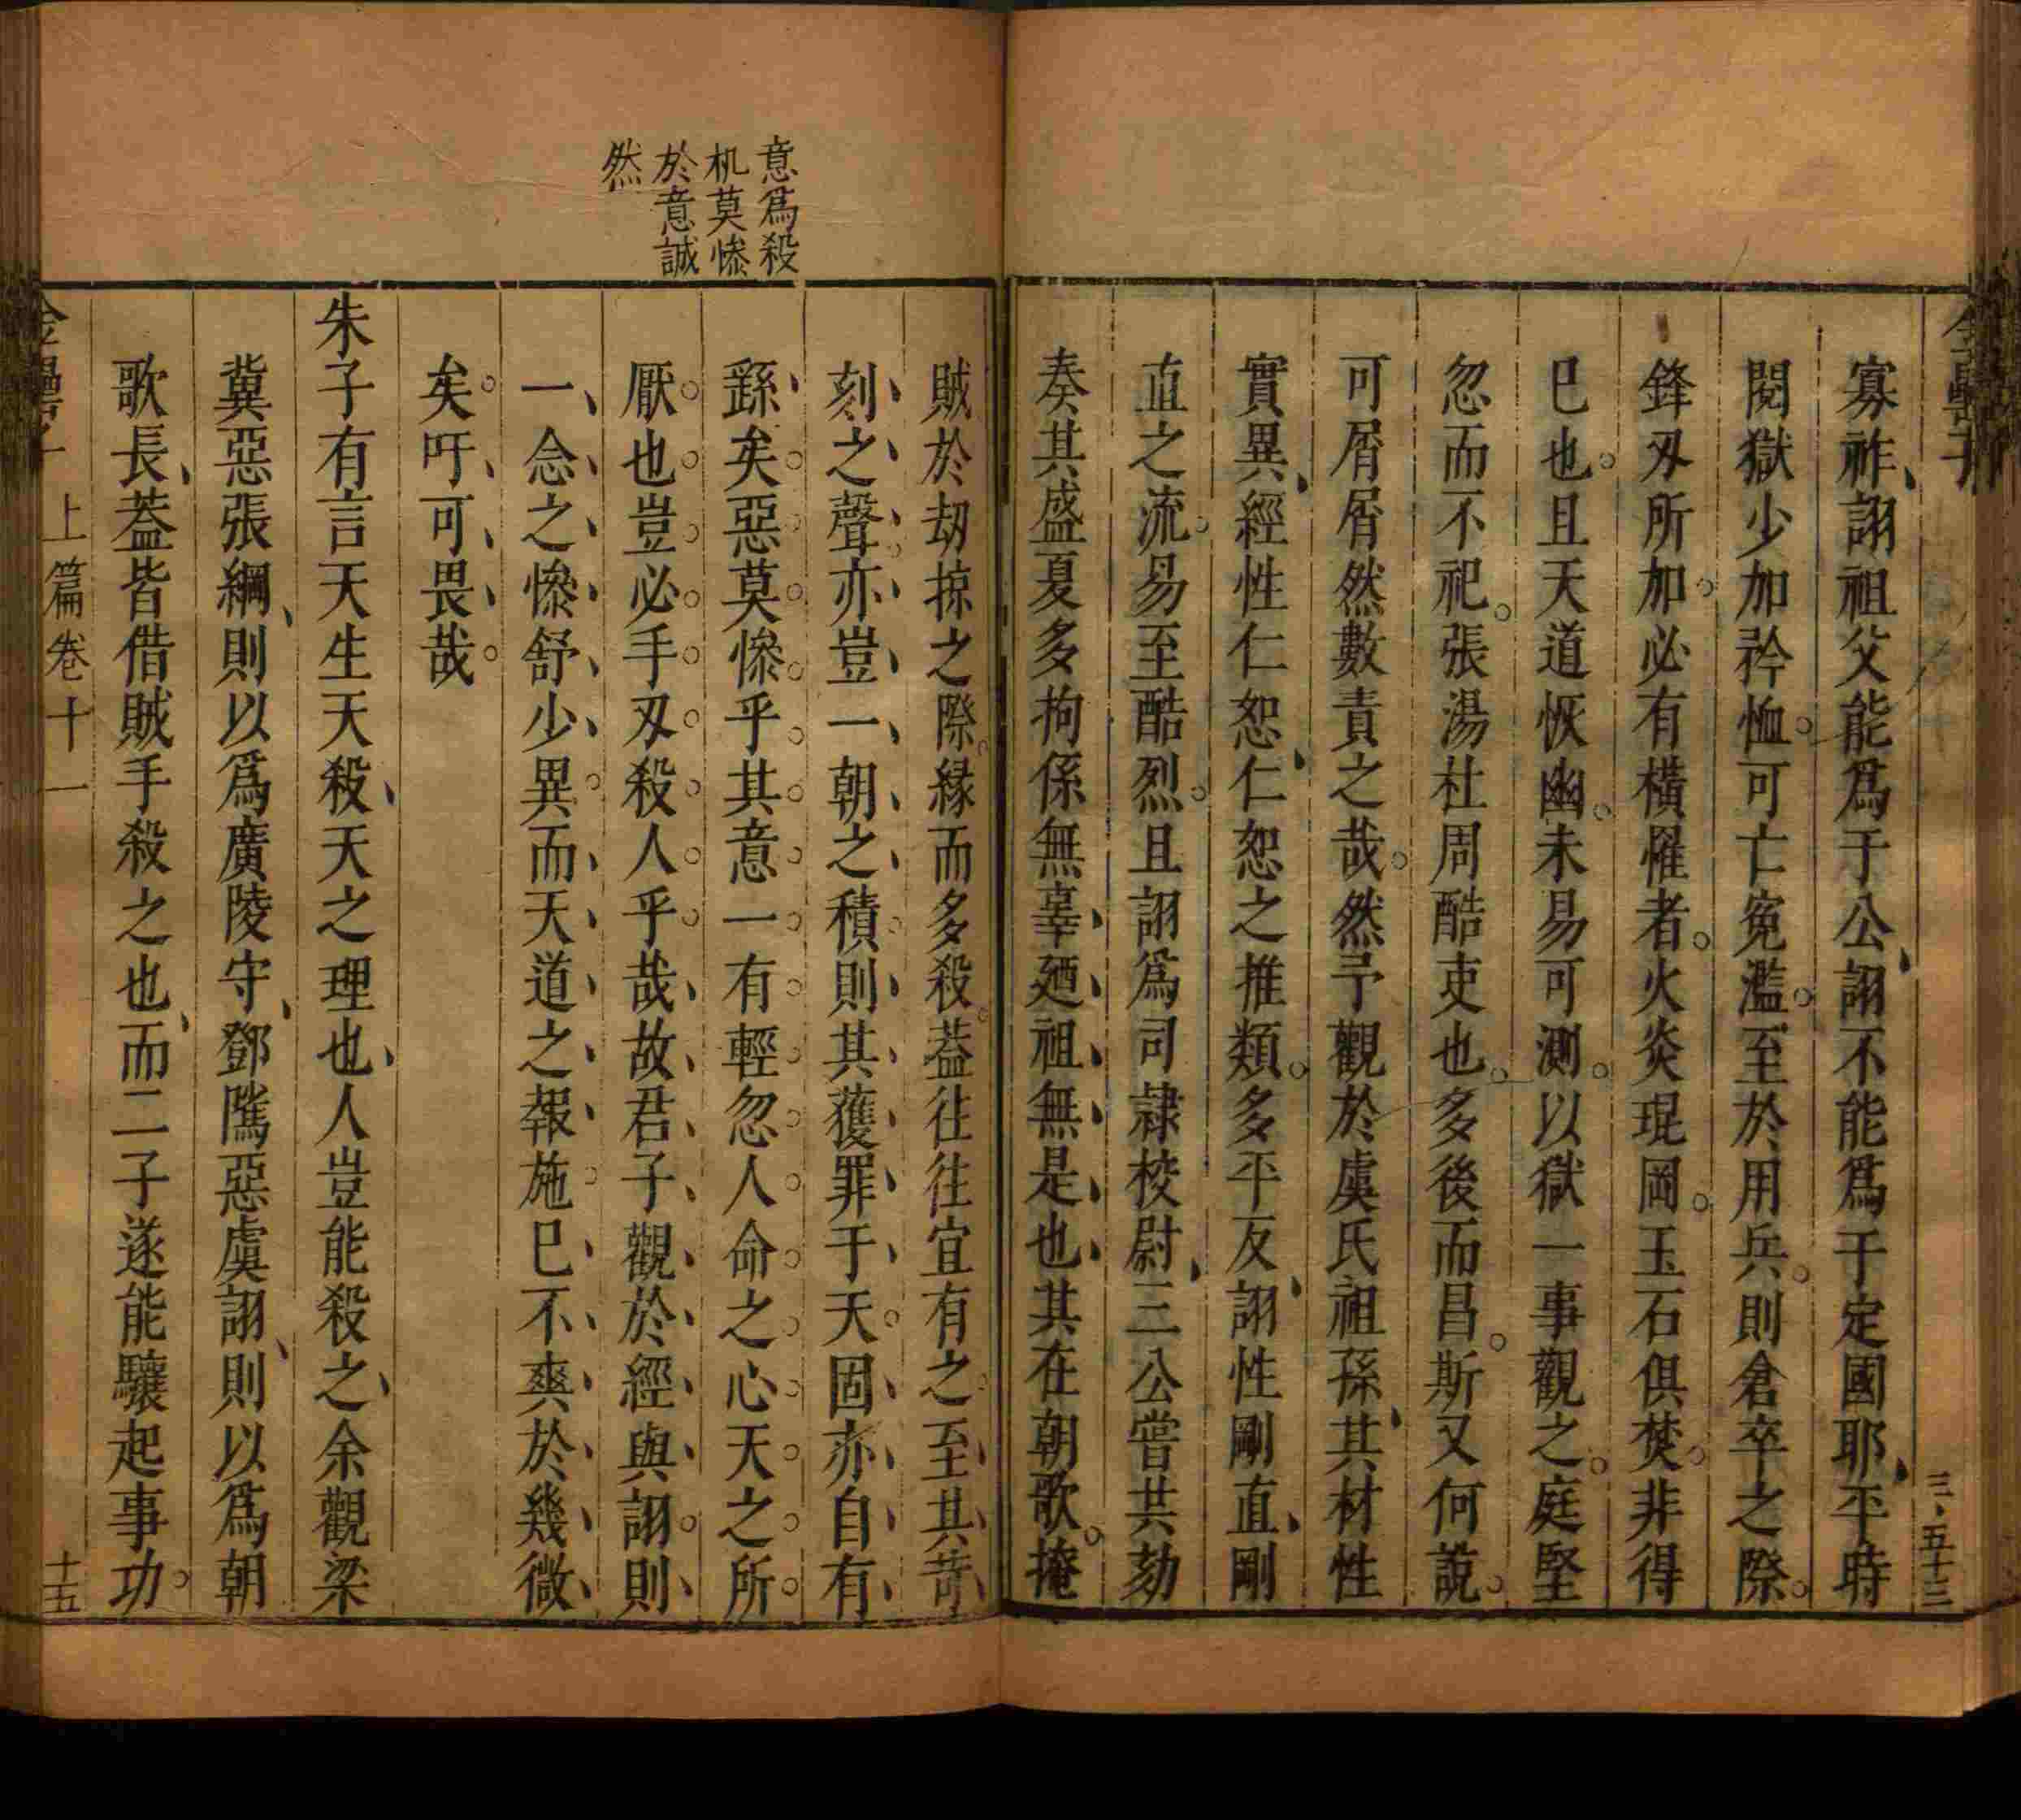 三五十三
寡祚詡祖父能爲于公詡不能爲于定國耶平時
閱獄少加矜恤可亡寃濫至於用兵則倉卒之際
鋒刄所加必有橫罹者火炎琨岡玉石俱焚非得
已也且天道恢幽未易可測以獄一事觀之庭堅
忽而不祀張湯杜周酷吏也多後而昌斯又何說
可屑屑然數責之哉然予觀於虞氏祖孫其材性
實異經性仁恕仁恕之推類多平反詡性剛直剛
直之流易至酷烈且詡爲司隷校尉三公嘗共劾
奏其盛夏多拘係無辜廼祖無是也其在朝歌掩
意爲殺
机莫慘
於意誠
然
賊於刼掠之際緣而多殺葢往往宜有之至其苛
刻之聲亦豈一朝之積則其獲罪于天固亦自有
繇矣惡莫慘乎其意一有輕忽人命之心天之所
厭也豈必手刄殺人乎哉故君子觀於經與詡則
一念之慘舒少異而天道之報施已不爽於幾微
矣吁可畏哉
朱子有言天生天殺天之理也人豈能殺之余觀梁
冀惡張綱則以爲廣陵守鄧隲惡虞詡則以爲朝
歌長葢皆借賊手殺之也而二子遂能驤起事功
上篇卷十一
十五